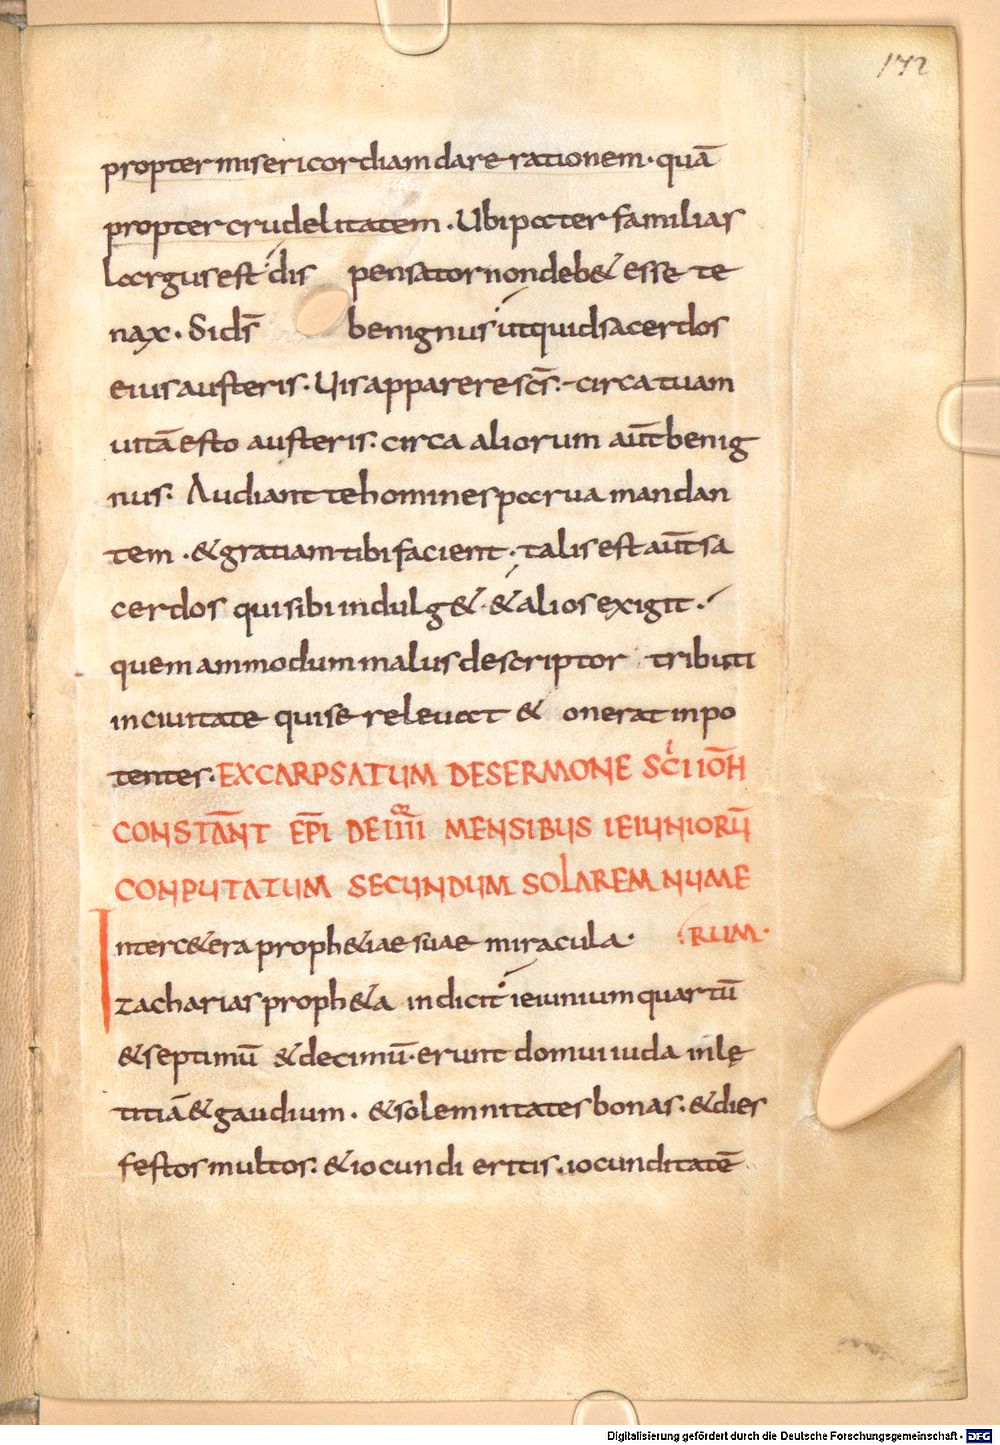 172
propter misericordiam dare rationem· quā
propter crudelitatem· Ubi paterfamilias
largus est· dispensator non deb& esse te
nax· Si ds̄ benignus· ut quid sacerdos
eius austeris· Uis apparere sc̄s· circa tuam
uitā esto austeris· circa aliorum aūt benig
nus· Audiant te homines parua mandan
tem· & gratiam tibi facient· talis est aūt sa
cerdos qui sibi indulg& & alios exigit·
quem ammodum malus descriptor tributi
in ciuitate qui se releuat & onerat inpo
tentes· EXCARPSATUM DE SERMONE SC̄I IOH̄
CONSTĀNT EP̄I DE IIII MENSIBUS IEIUNIORŪ
CONPUTATUM SECUNDUM SOLAREM NUME
RUM·
Inter c&era proph&iae suae miracula·
zacharias proph&a indicit· ieiunium quartū
& septimū & decimū· erunt domui iuda in lę
titiā & gaudium· & solemnitates bonas· & dies
festos multos· & iocundi eritis· iocunditatē
Digitalisierung gefördert durch die Deutsche Forschungsgemeinschaft - DFG